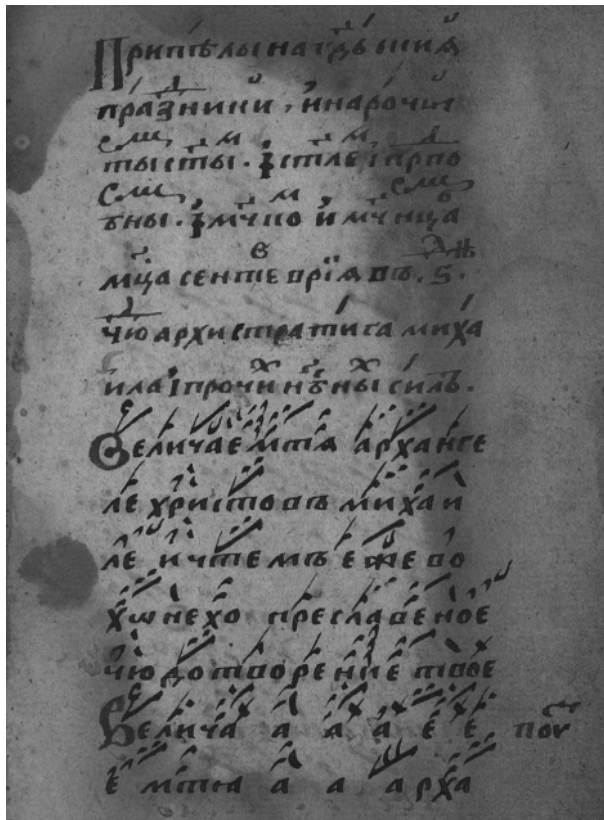 Припѣлы на гдьския
праздники, и нарочи
тыя стыя. і стле і прпо
бны. і мч по и мчнца
мца сентеврїя въ. ѕ.
чю архистратига миха
ила і прочи нбны силъ.
Величаемтя арханге
ле христовъ михаи
ле и чтемъ еже во
хѡнехо преславеное
чюдотворение твое
Велича а а а е е поу
е мтя а а арха